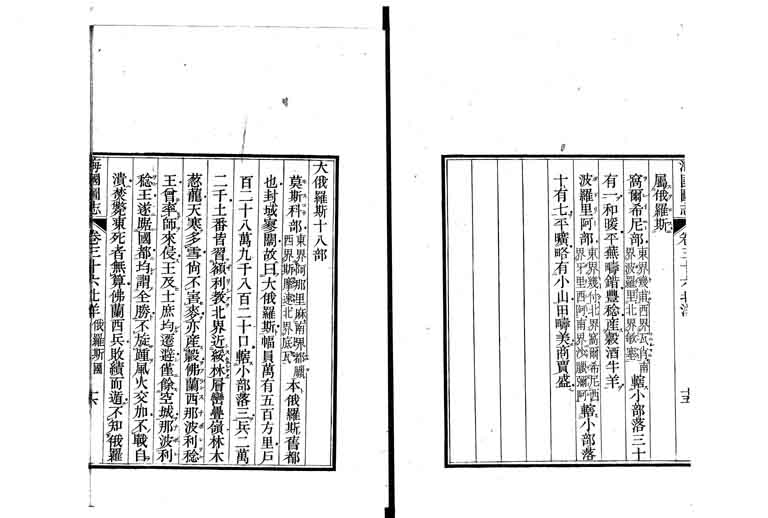 海國圖志 卷三十六 北洋 十五
屬俄羅斯
窩爾希尼部東界幾甫西界瓦肖南界波羅里北界敏塞轄小部落三十
有一和暖平蕪疇錯豐稔産穀酒牛羊
波羅里阿部東界幾付北界窩爾希尼西界牙里西阿南界沙臘彌阿轄小部落
十有七平曠略有小山田疇美商賈盛
大俄羅斯十八部
莫斯科部東界阿那里麻南界都臘西界斯摩達北界底瓦本俄羅斯舊都
也封域寥闊故曰大俄羅斯幅員萬有五百方里戶
百二十八萬九千八百二十口轄小部落三兵二萬
二千土番皆習額利教北界近綏林層巒疊嶺林木
葱蘢天寒多雪尙不害麥亦産穀佛蘭西那波利稔
王曾率師來侵王及士庶均遷避僅餘空城那波利
稔王遂踞國都均謂全勝不旋踵風火交加不戰自
潰焚斃凍死者無算佛蘭西兵敗績而遁不知俄羅
海國圖志 卷三十六 北洋 俄羅斯國 十六